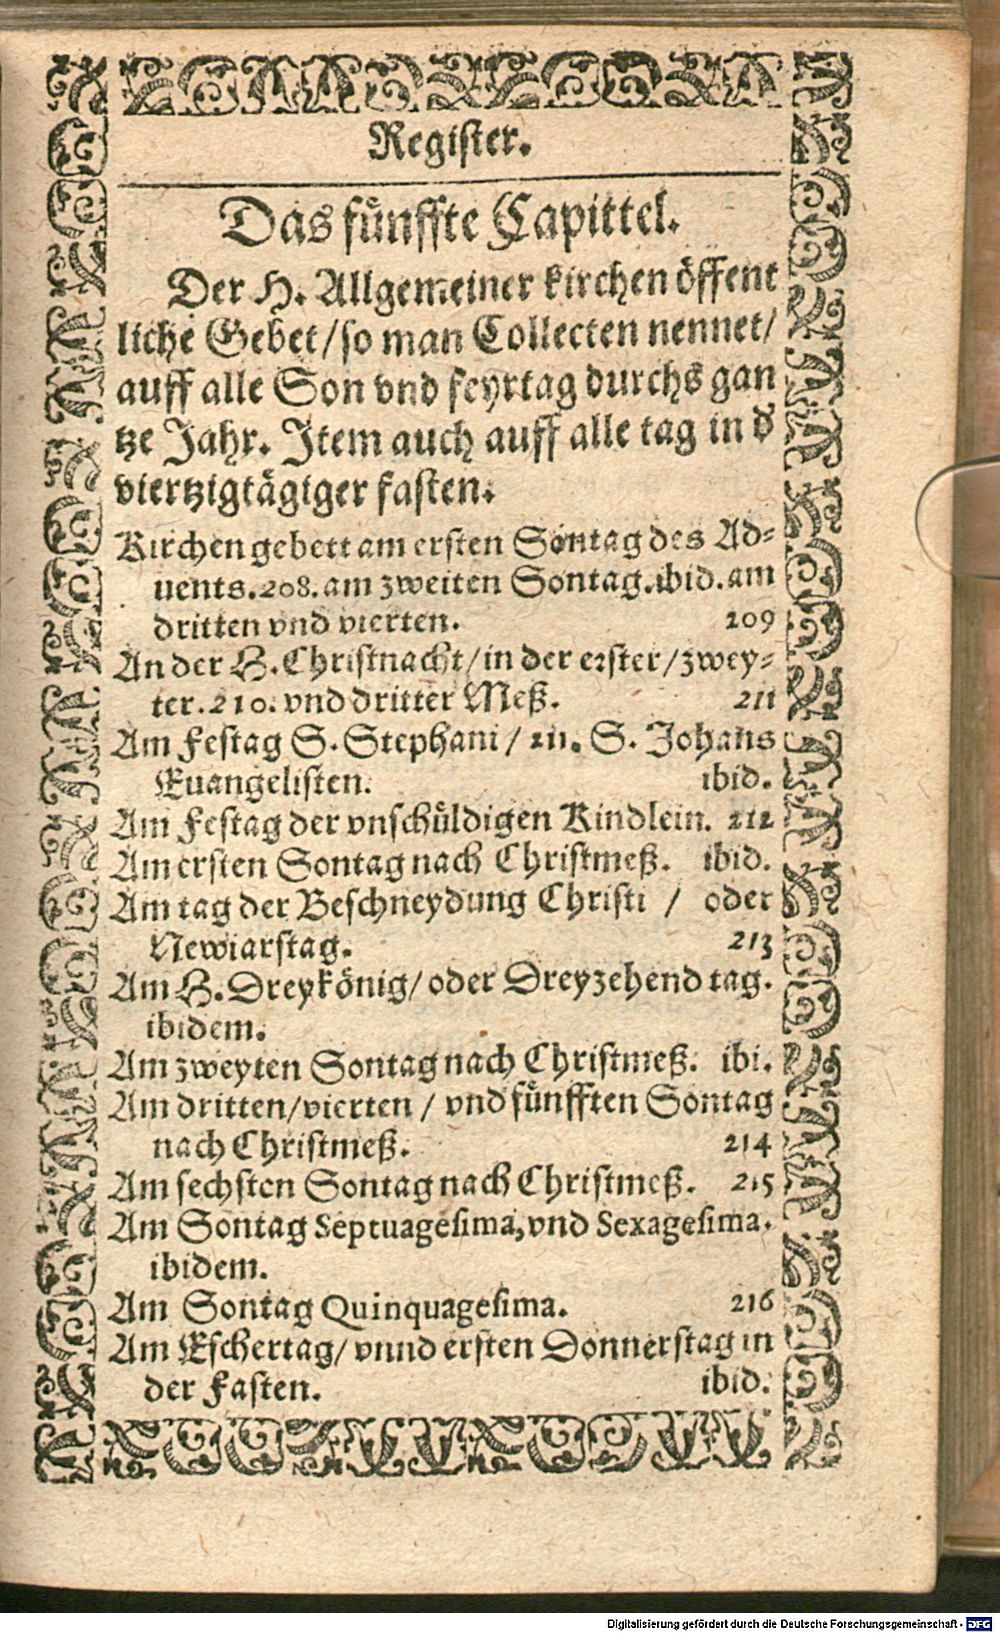 Register.
Das fünffte Capittel.
Der H. Allgemeiner kirchen öffent
liche Gebet/so man Collecten nennet/
auff alle Son vnd feyrtag durchs gan
tze Jahr. Item auch auff alle tag in d̛
viertzigtägiger fasten.
Kirchen gebett am ersten Sontag des Ad⸗
uents.208.am zweiten Sontag.ibid.am
dritten vnd vierten. 209
An der H.Christnacht/in der erster/zwey⸗
ter.210.vnd dritter Meß. 211
Am Festag S.Stephani/211. S. Johans
Euangelisten. ibid.
Am Festag der vnschüldigen Kindlein. 212
Am ersten Sontag nach Christmeß. ibid.
Am tag der Beschneydung Christi / oder
Newiarstag. 213
Am H.Dreykönig/oder Dreyzehend tag.
ibidem.
Am zweyten Sontag nach Christmeß. ibi.
Am dritten/vierten / vnd fünfften Sontag
nach Christmeß. 214
Am sechsten Sontag nach Christmeß. 215
Am Sontag Septuagesima,vnd Sexagesima.
ibidem.
Am Sontag Quinquagesima. 216
Am Eschertag/vnnd ersten Donnerstag in
der Fasten. ibid.
Digitalisierung gefördert durch die Deutsche Forschungsgemeinschaft - DFG